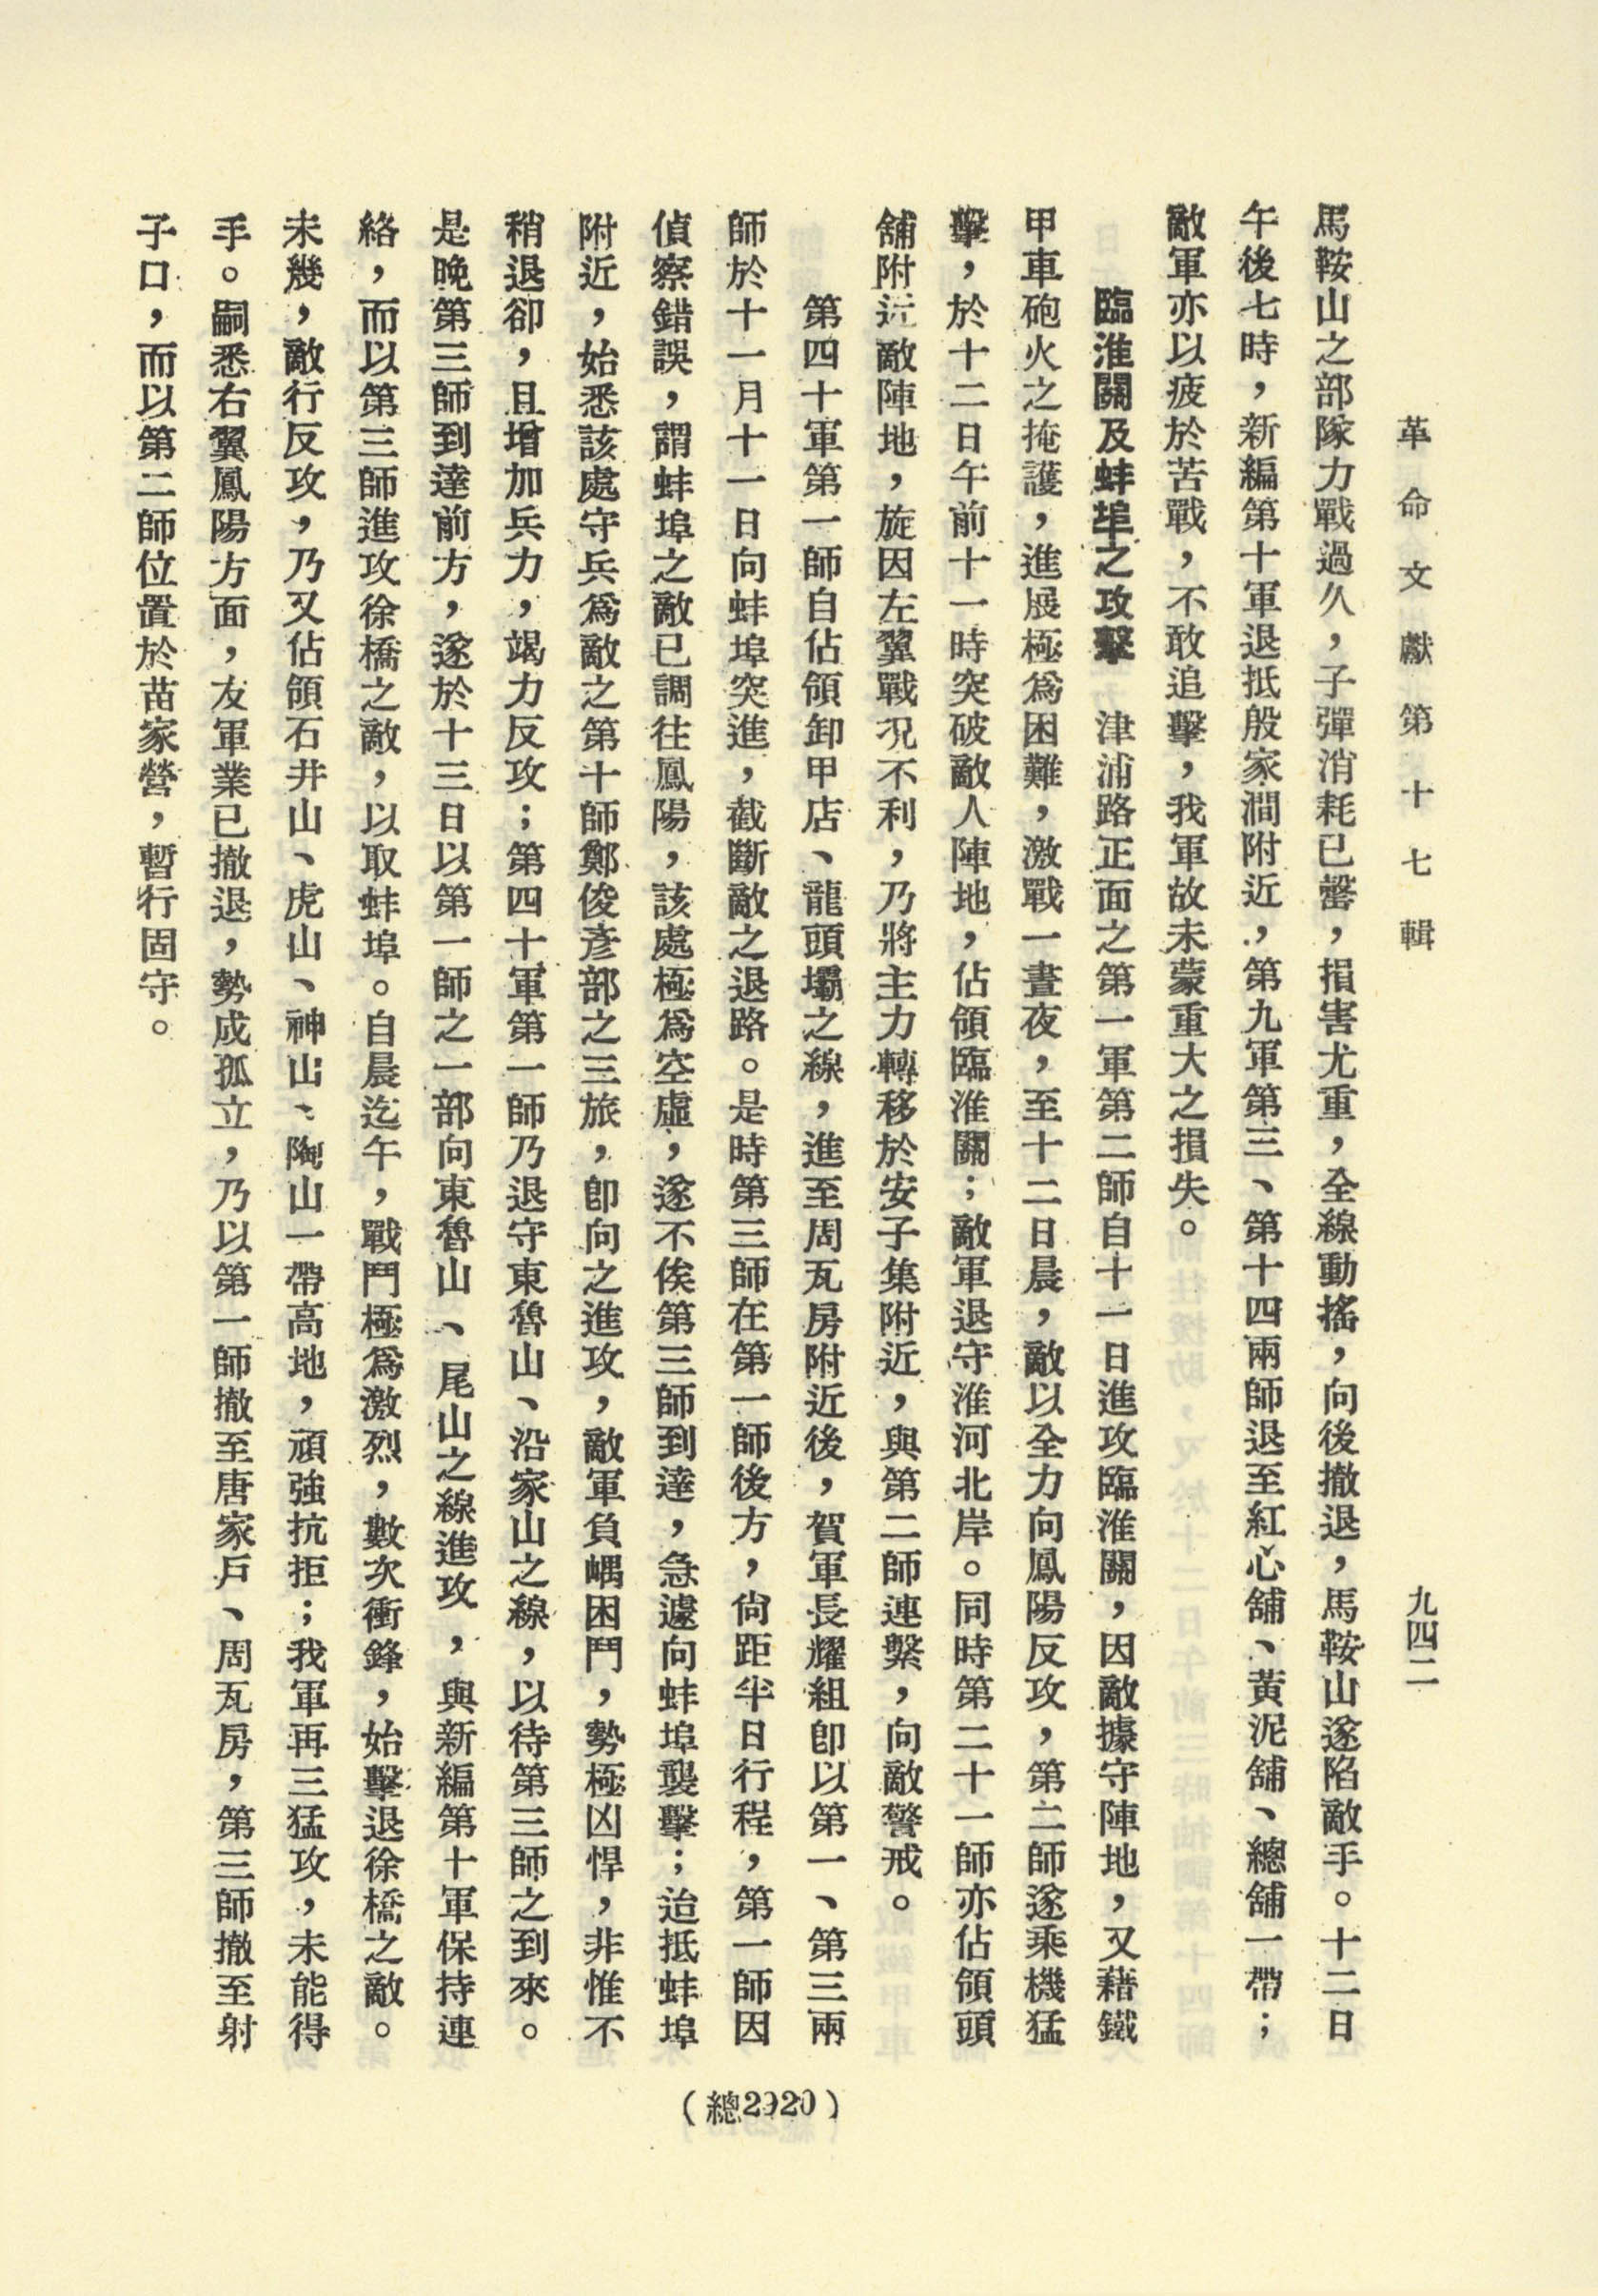 革命文獻第十七輯
九四二
馬鞍山之部隊力戰過久，子彈消耗已罄，損害尤重，全線動搖，向後撤退，馬鞍山遂陷敵手。十二日
午後七時，新編第十軍退抵殷家澗附近，第九軍第三、第十四兩師退至紅心舖、黃泥舖、總舖一帶；
敵軍亦以疲於苦戰，不敢追擊，我軍故未蒙重大之損失。
臨淮關及蚌埠之攻擊　津浦路正面之第一軍第二師自十一日進攻臨淮關，因敵據守陣地，又藉鐵
甲車砲火之掩護，進展極爲困難，激戰一晝夜，至十二日晨，敵以全力向鳳陽反攻，第二師遂乘機猛
擊，於十二日午前十一時突破敵人陣地，佔領臨淮關；敵軍退守淮河北岸。同時第二十一師亦佔領頭
舖附近敵陣地，旋因左翼戰況不利，乃將主力轉移於安子集附近，與第二師連繫，向敵警戒。
第四十軍第一師自佔領卸甲店、龍頭壩之線，進至周瓦房附近後，賀軍長耀組卽以第一、第三兩
師於十一月十一日向蚌埠突進，截斷敵之退路。是時第三師在第一師後方，尙距半日行程，第一師因
偵察錯誤，謂蚌埠之敵已調往鳳陽，該處極爲空虛，遂不俟第三師到達，急遽向蚌埠襲擊；迨抵蚌埠
附近，始悉該處守兵爲敵之第十師鄭俊彥部之三旅，卽向之進攻，敵軍負嵎困鬥，勢極凶悍，非惟不
稍退卻，且增加兵力，竭力反攻；第四十軍第一師乃退守東魯山、沿家山之線，以待第三師之到來。
是晚第三師到達前方，遂於十三日以第一師之一部向東魯山、尾山之線進攻，與新編第十軍保持連
絡，而以第三師進攻徐橋之敵，以取蚌埠。自晨迄午，戰鬥極爲激烈，數次衝鋒，始擊退徐橋之敵。
未幾，敵行反攻，乃又佔領石井山、虎山、神山、陶山一帶高地，頑強抗拒；我軍再三猛攻，未能得
手。嗣悉右翼鳳陽方面，友軍業已撤退，勢成孤立，乃以第一師撤至唐家戶、周瓦房，第三師撤至射
子口，而以第二師位置於苗家營，暫行固守。
（總2920）